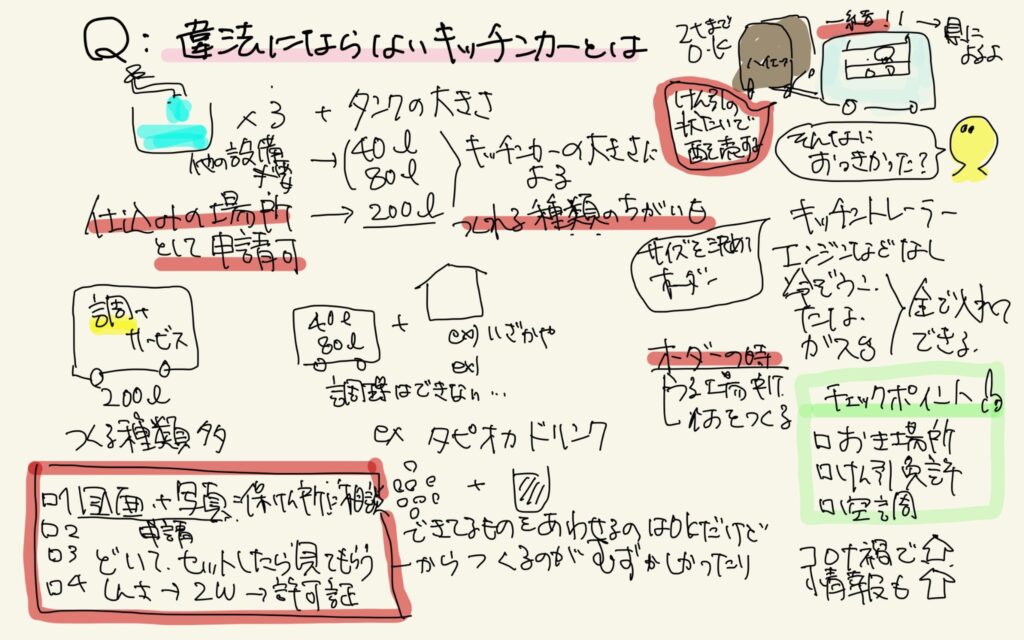 Q: 違法にならないキッチンカーとは
×3 + タンクの大きさ
他の設備
→ 40l
80l
キッチンカーの大きさに
よる
仕込みの場所
として申請可
→ 200l
つくれる種類のちがいも
調+
サービス
200l
つくる種類多
40l
80l
+
ex) いざかや
ex)
調理はできない…
ex タピオカドリンク
+
できてるものをあわせるのはOKだけど
一からつくるのがむずかしかったり
□1 図面+写真:保けん所に相談
□2 申請
□3 どいて、セットしたら見てもらう
□4 しんさ→2W→許可証
2tまで
O.K
ハイエース
一緒!!
→県に
よるよ
けん引の
状たいで
販売する
そんなに
おっきかった?
キッチントレーラー
エンジンなどなし
サイズを決めて
オーダー
冷ぞうこ
たな
ガスも
全て入れて
できる
オーダーの時
うる場所
をつくる
チェックポイント
□おき場所
□けん引免許
□空調
コロナ禍で⇧
情報も⇧